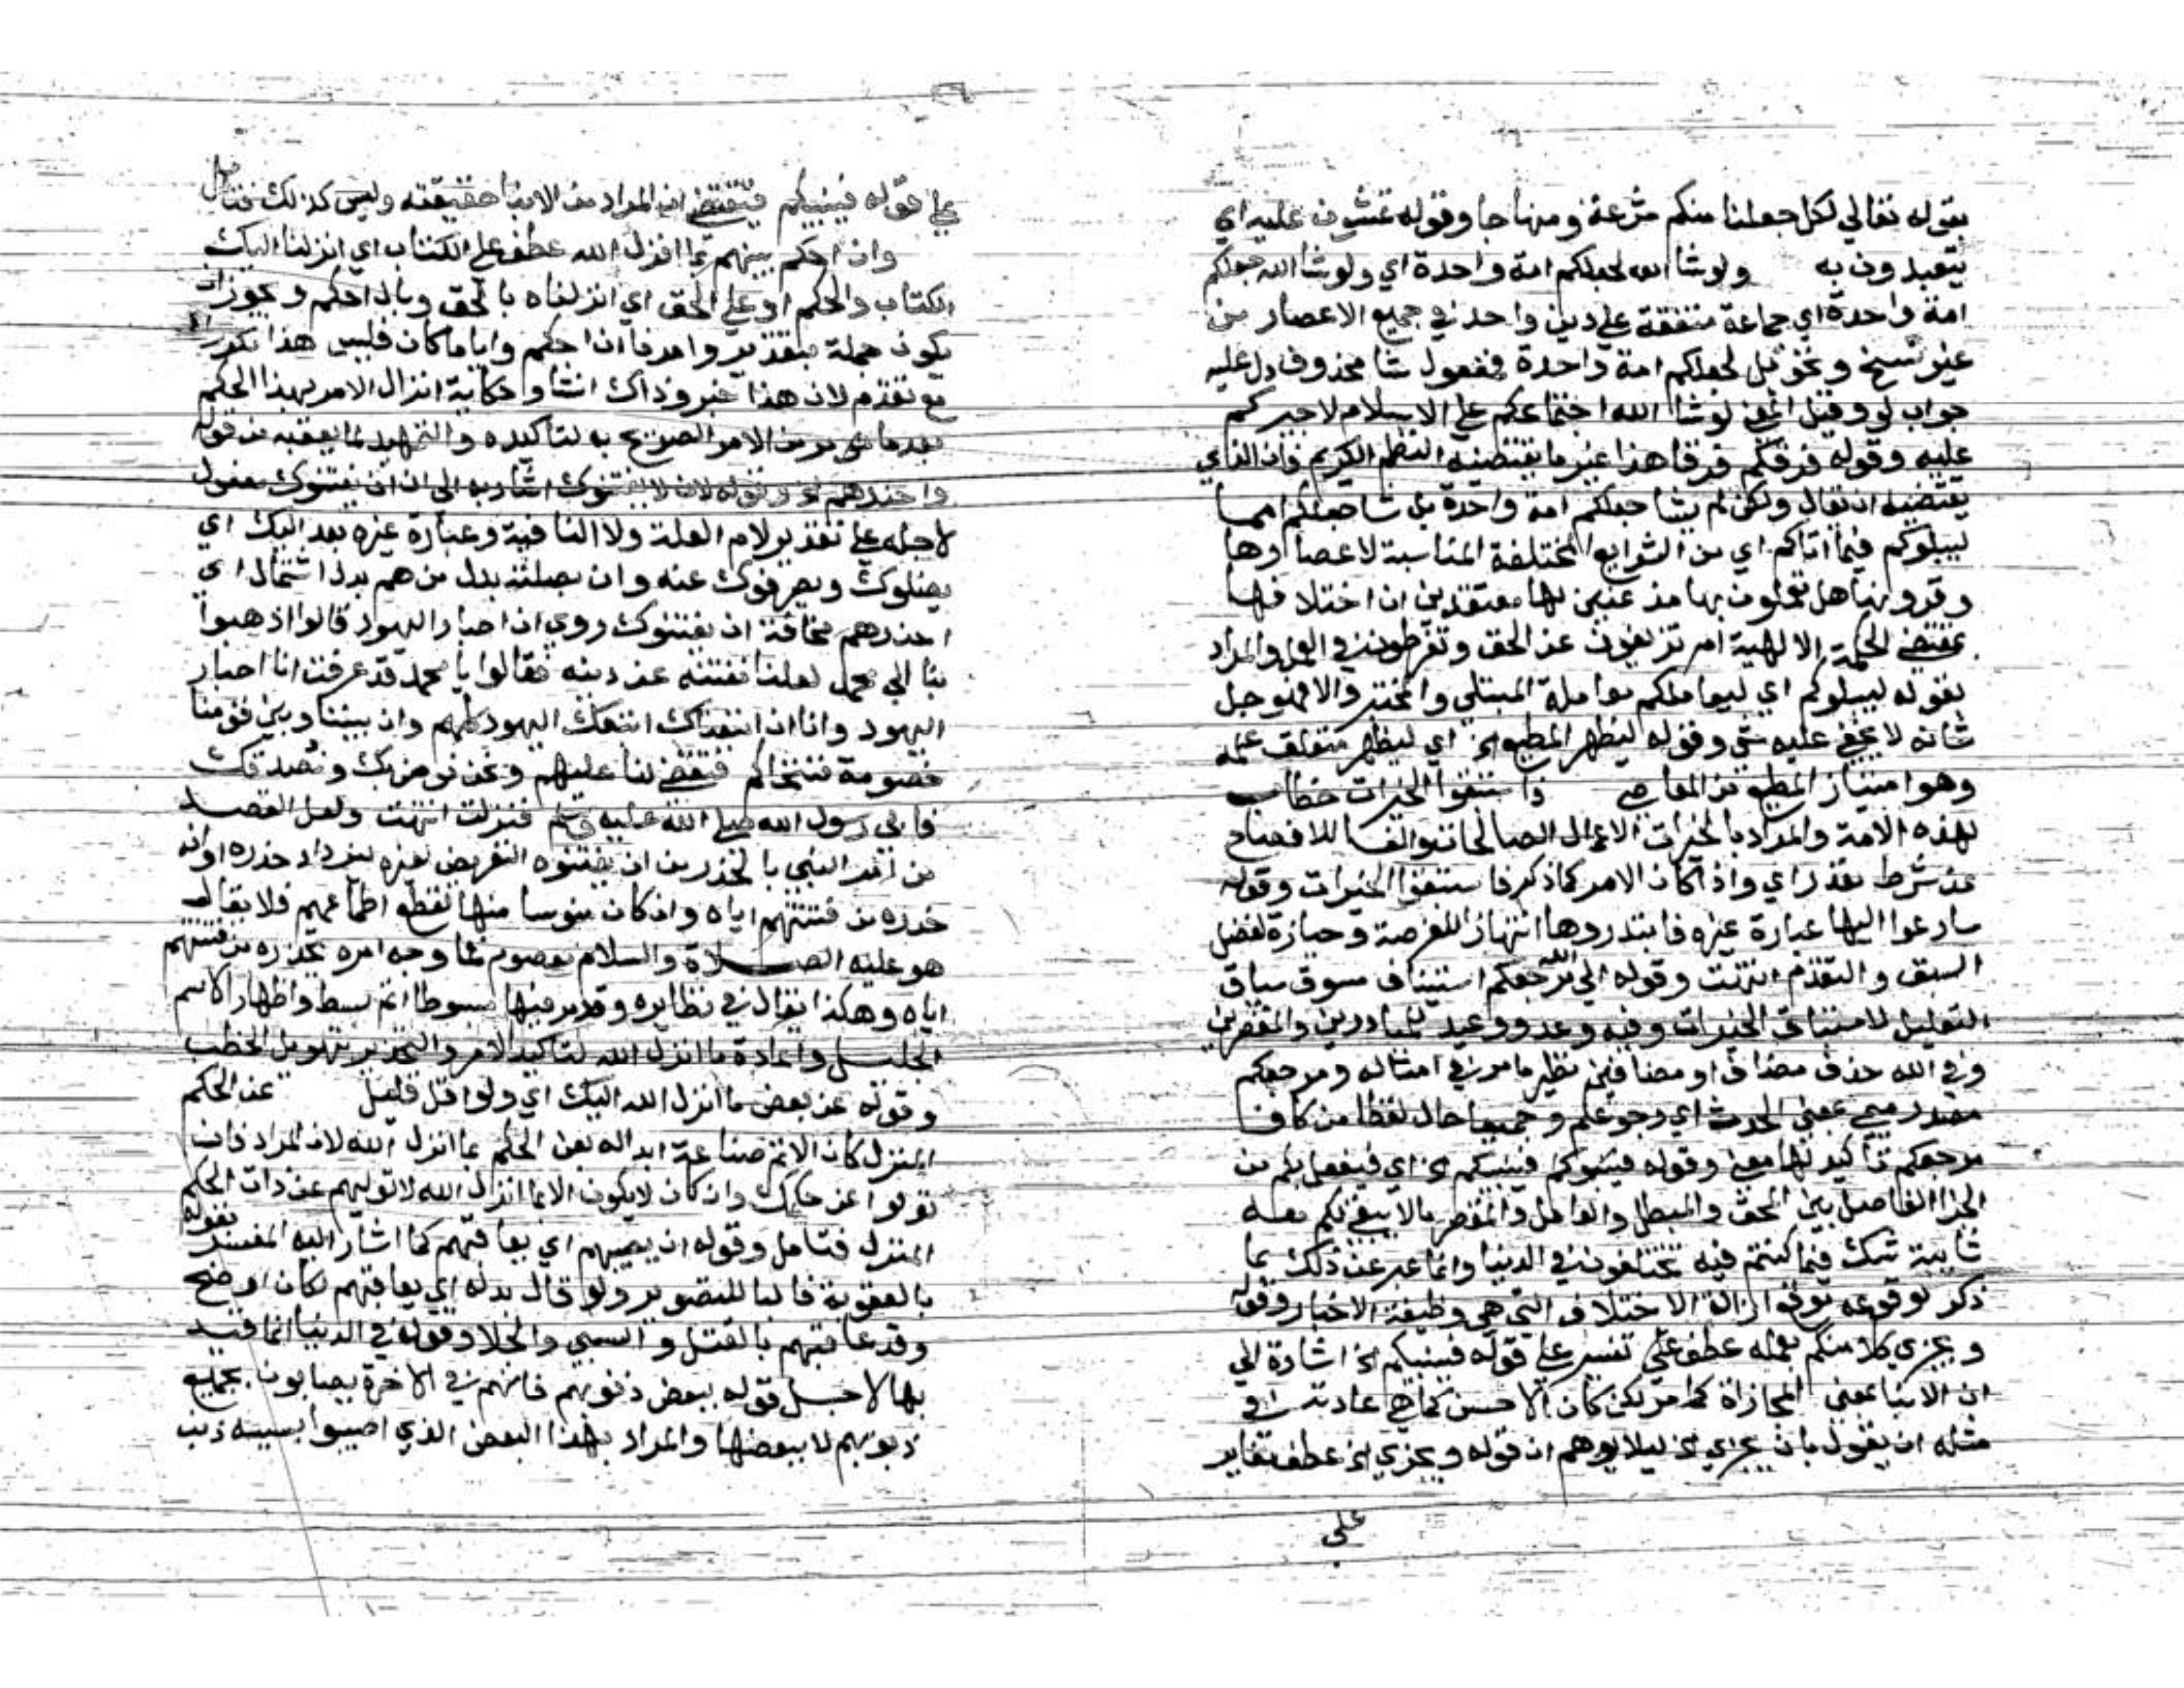 بقوله تعالي لكل جعلنا منكم شرعة ومنهاجا وقوله تمشون عليه اي
يتعبدون به ولو شا الله لجعلكم امة واحدة اي ولو شا الله جعلكم
امة واحدة اي جماعة متفقة علي دين واحد في جميع الاعصار من
غير نسخ وتحويل لجعلكم امة واحدة فمفعول شا محذوف دل عليه
جواب لو وقيل المعني لو شا الله اجتماعكم علي الاسلام لاجبركم
عليه وقوله فرقكم فرقا هذا غير ما يقتضيه النظم الكريم فان الذي
يقتضيه ان يقال ولكن لم يشا جعلكم امة واحدة بل شا جعلكم امما
ليبلوكم فيما اتاكم اي من الشرايع المختلفة المناسبة لاعصارها
وقرونها هل تعملون بها مذعنين لها معتقدين ان اختلافها
بمقتضي الحكمة الالهية ام تزيغون عن الحق وتفرطون في العمل والمراد
بقوله ليبلوكم اي ليعاملكم معاملة المبتلي والمختبر والا فهو جل
شانه لا يخفي عليه شي وقوله ليظهر المطيع الخ اي ليظهر متعلق علمه
وهو امتياز المطيع من العاصي فاستبقوا الخيرات خطاب
لهذه الامة والمراد بالخيرات الاعمال الصالحات والفا للافصاح
عن شرط مقدر اي واذا كان الامر كما ذكر فاستبقوا الخيرات وقوله
سارعوا اليها عبارة غيره فابتدروها انتهازا للفرصة وحيازة لفضل
السبق والتقدم انتهت وقوله الي الله مرجعكم استيناف مسوق سياق
التعليل لاستباق الخيرات وفيه وعد ووعيد للمبادرين والمقصرين
وفي الله حذف مضاف او مضافين نظير ما مر في امثاله ومرجعكم
مصدر ميمي بمعني الحدث اي رجوعكم وجميعا حال لفظا من كاف
مرجعكم تاكيد لها معني وقوله فينبيكم الخ اي فيفعل بكم من
الجزا الفاصل بين المحق والمبطل والعامل والمفرط ما لا يبقي لكم معه
شايبة شك فيما كنتم فيه تختلفون في الدنيا وانما عبر عن ذلك بما
ذكر لوقوعه موقع ازالة الاختلاف التي هي وظيفة الاخبار وقوله
ويجزي كلا منكم بعمله عطف تفسير علي قوله فينبيكم الخ اشارة الي
ان الانبا بمعني المجازاة كما مر لكن كان الاحسن كما هي عادته في
مثله ان يقول بان يجزي الخ ليلا يوهم ان قوله ويجزي الخ عطف تغاير
علي
علي قوله فينبيكم فيقتضي ان المراد من الانبا حقيقته وليس كذلك فتامل
وان احكم بينهم بما انزل الله عطف علي الكتاب اي انزلنا اليك
الكتاب والحكم او علي الحق اي انزلناه بالحق وبان احكم ويجوز ان
يكون جملة بتقدير وامرنا ان احكم وايا ما كان فليس هذا تكرارا
مع تقدم لان هذا خبر وذاك انشا وحكاية انزال الامر بهذا الحكم
بعد ما مر من الامر الصريح به لتاكيده والتمهيد لما يعقبه من قوله
واحذرهم الخ وقوله لان لا يفتنوك اشار به الي ان ان يفتنوك مفعول
لاجله علي تقدير لام العلة ولا النافية وعبارة غيره بعد اليك اي
يضلوك ويصرفوك عنه وان بصلته بدل من هم بدل اشتمال اي
احذرهم مخافة ان يفتنوك روي ان احبار اليهود قالوا اذهبوا
بنا الي محمد لعلنا نفتنه عن دينه فقالوا يا محمد قد عرفت انا احبار
اليهود وانا ان اتبعناك اتبعك اليهود كلهم وان بيننا وبين قومنا
خصومة فنتحاكم فتقضي لنا عليهم ونحن نومن بك ونصدقك
فابي رسول الله صلي الله عليه وسلم فنزلت انتهت ولعل القصد
من امر النبي بالحذر من ان يفتنوه التعريض لغيره ليزداد حذره او انه
حذره من فتنتهم اياه وان كان ميوسا منها لقطع اطماعهم فلا يقال
هو عليه الصلاة والسلام معصوم فما وجه امره بحذره من فتنتهم
اياه وهكذا يقال في نظايره وقد مر فيها مبسوطا اتم بسط واظهار الاسم
الجليل واعادة ما انزل الله لتاكيد الامر والتحذير بتهويل الخطب
وقوله عن بعض ما انزل الله اليك اي ولو اقل قليل عن الحكم
المنزل كان الاتم صناعة ابداله بعن الحكم بما انزل الله لان المراد فان
تولوا عن حكمك وان كان لا يكون الا بما انزل الله لا توليهم عن ذات الحكم
المنزل فتامل وقوله ان يصيبهم اي يعاقبهم كما اشار اليه المفسر بقوله
بالعقوبة فالبا للتصوير ولو قال بدله اي يعاقبهم لكان اوضح
وقد عاقبهم بالقتل والسبي والجلا وقوله في الدنيا انما قيد
بها لاجل قوله ببعض ذنوبهم فانهم في الاخرة يصابون بجميع
ذنوبهم لا ببعضها والمراد بهذا البعض الذي اصيبوا بسببه ذنب